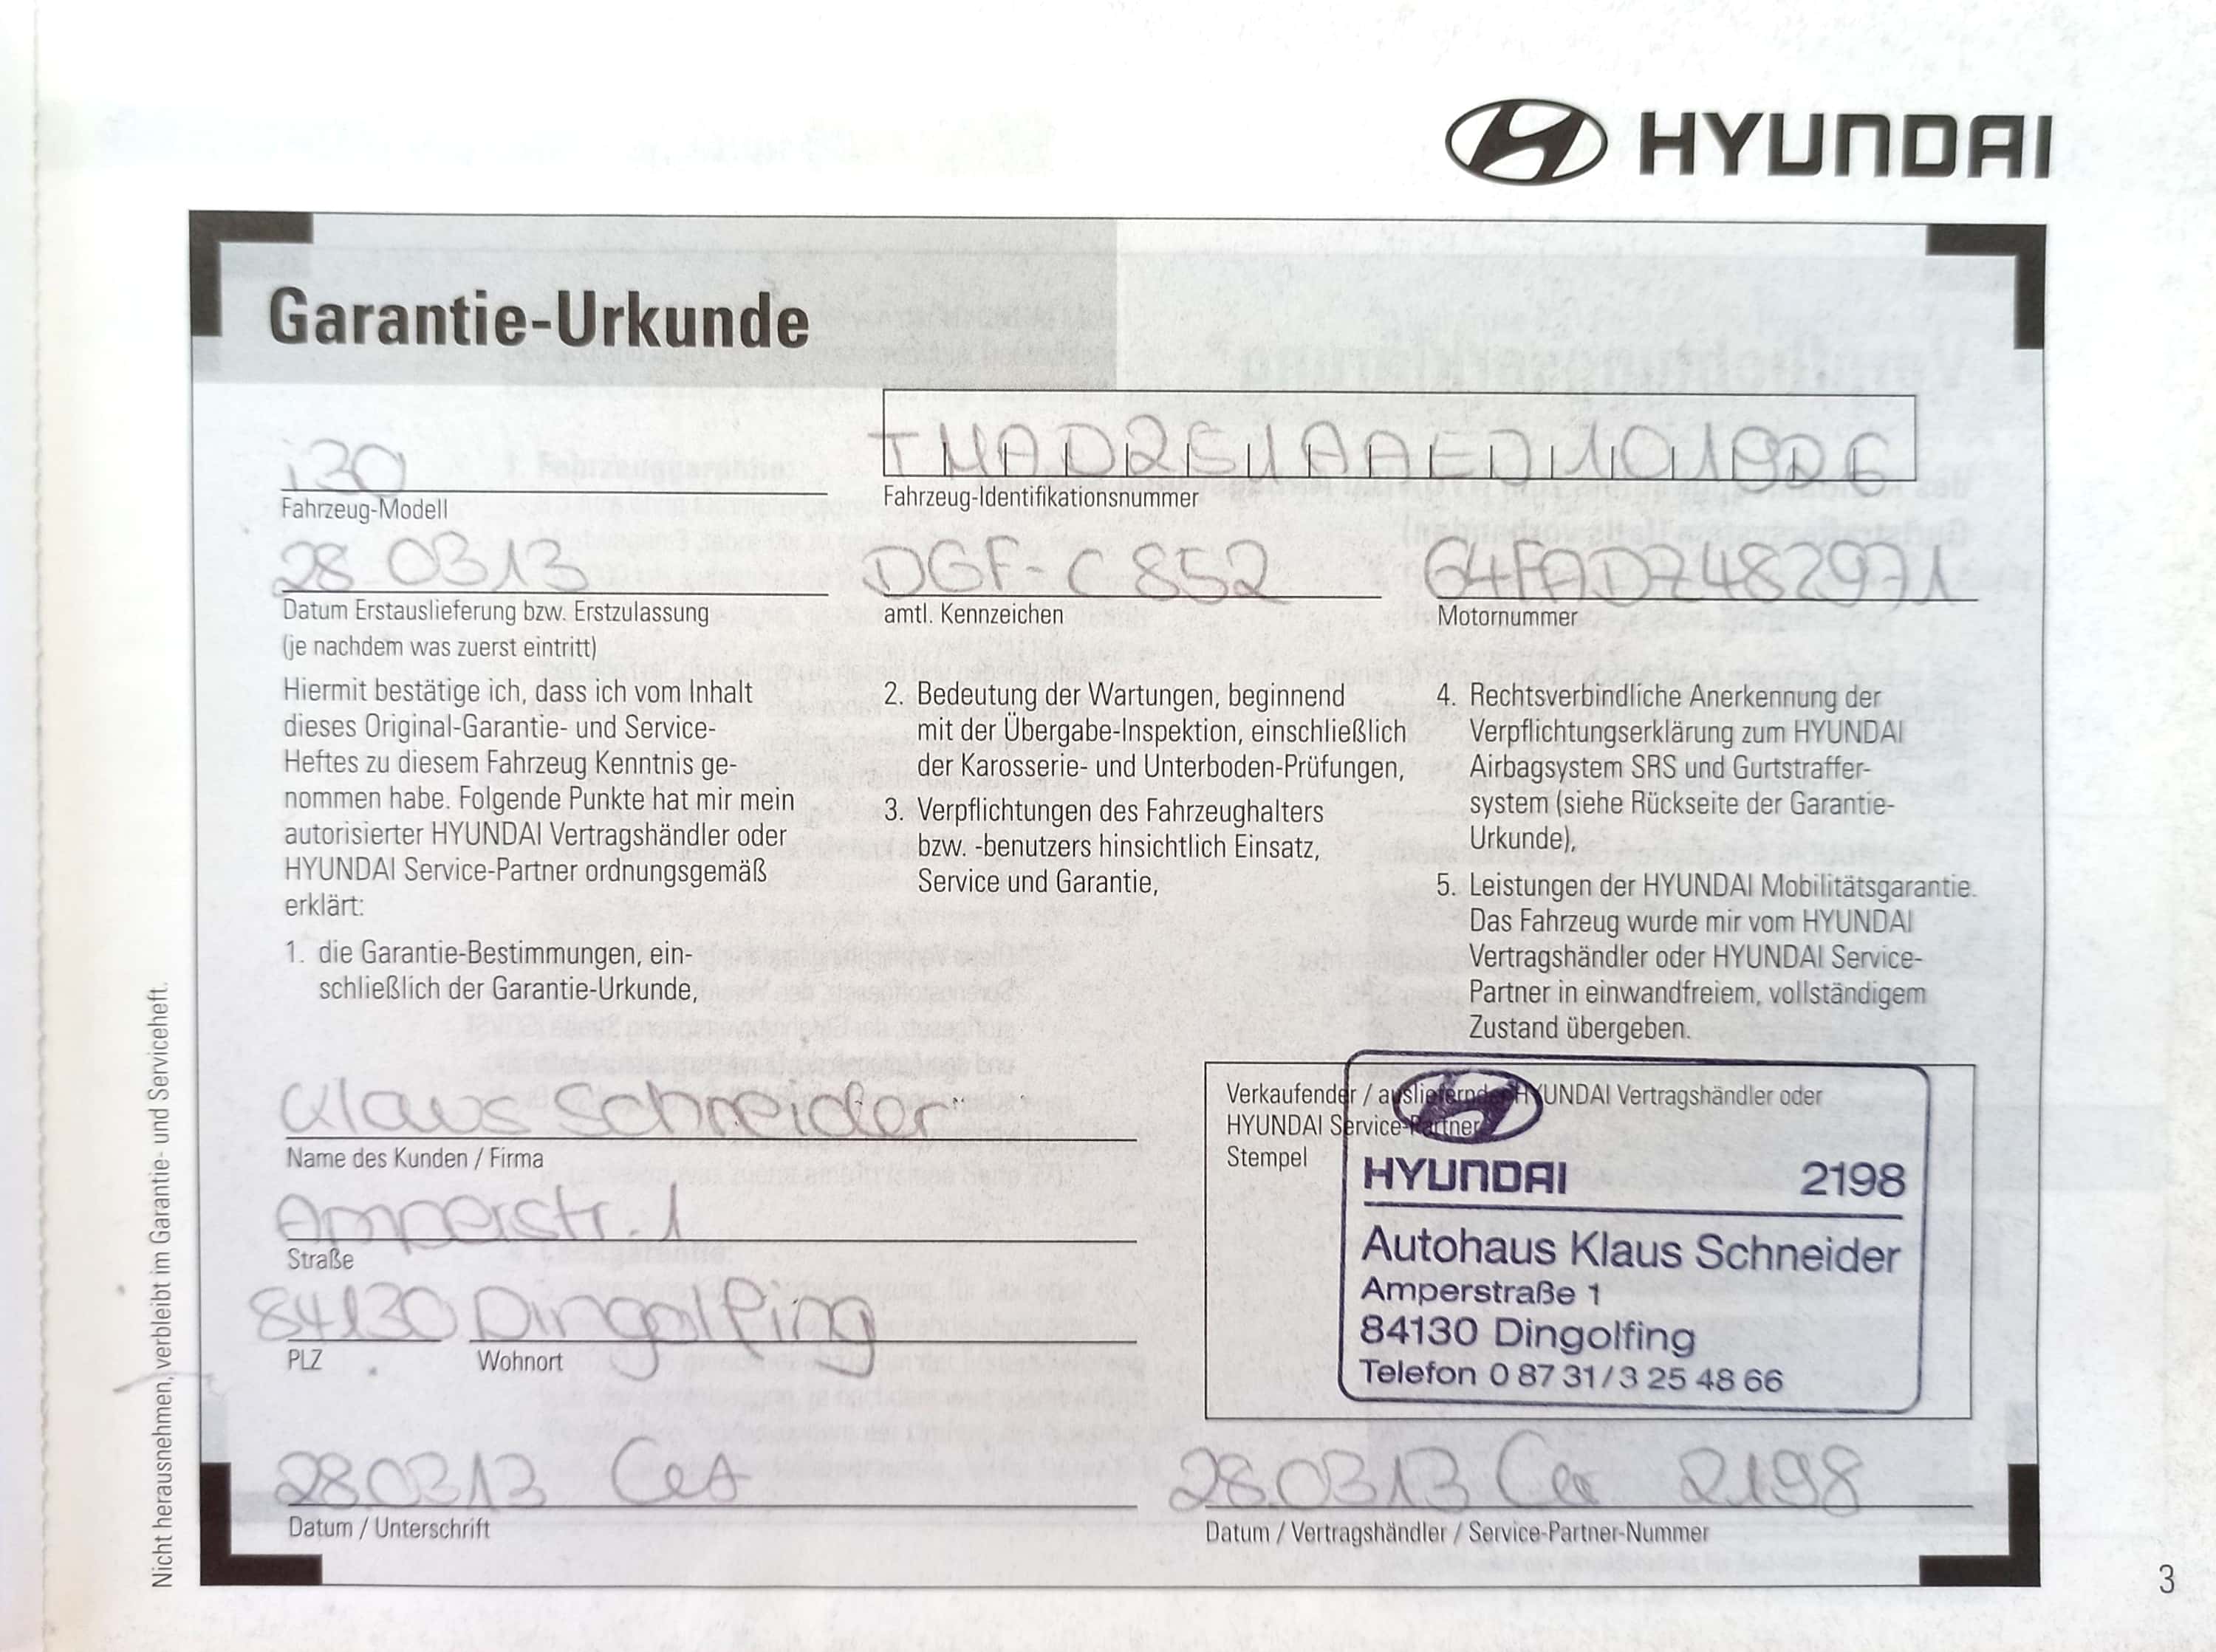 HYUNDAI
Garantie-Urkunde
i30
Fahrzeug-Modell
Fahrzeug-Identifikationsnummer
28 03 13
Datum Erstauslieferung bzw. Erstzulassung
(je nachdem was zuerst eintritt)
DGF-C 852
amtl. Kennzeichen
G4FADZ482971
Motornummer
Hiermit bestätige ich, dass ich vom Inhalt
dieses Original-Garantie- und Service-
Heftes zu diesem Fahrzeug Kenntnis ge-
nommen habe. Folgende Punkte hat mir mein
autorisierter HYUNDAI Vertragshändler oder
HYUNDAI Service-Partner ordnungsgemäß
erklärt:
1. die Garantie-Bestimmungen, ein-
schließlich der Garantie-Urkunde,
2. Bedeutung der Wartungen, beginnend
mit der Übergabe-Inspektion, einschließlich
der Karosserie- und Unterboden-Prüfungen,
3. Verpflichtungen des Fahrzeughalters
bzw. -benutzers hinsichtlich Einsatz,
Service und Garantie,
4. Rechtsverbindliche Anerkennung der
Verpflichtungserklärung zum HYUNDAI
Airbagsystem SRS und Gurtstraffer-
system (siehe Rückseite der Garantie-
Urkunde),
5. Leistungen der HYUNDAI Mobilitätsgarantie.
Das Fahrzeug wurde mir vom HYUNDAI
Vertragshändler oder HYUNDAI Service-
Partner in einwandfreiem, vollständigem
Zustand übergeben.
Klaus Schneider
Name des Kunden / Firma
Amperstr. 1
Straße
84130 Dingolfing
PLZ Wohnort
28.03.13
Datum / Unterschrift
Verkaufender / ausliefernder HYUNDAI Vertragshändler oder
HYUNDAI Service-Partner
Stempel
HYUNDAI 2198
Autohaus Klaus Schneider
Amperstraße 1
84130 Dingolfing
Telefon 0 87 31 / 3 25 48 66
28.03.13 2198
Datum / Vertragshändler / Service-Partner-Nummer
Nicht herausnehmen, verbleibt im Garantie- und Serviceheft.
3